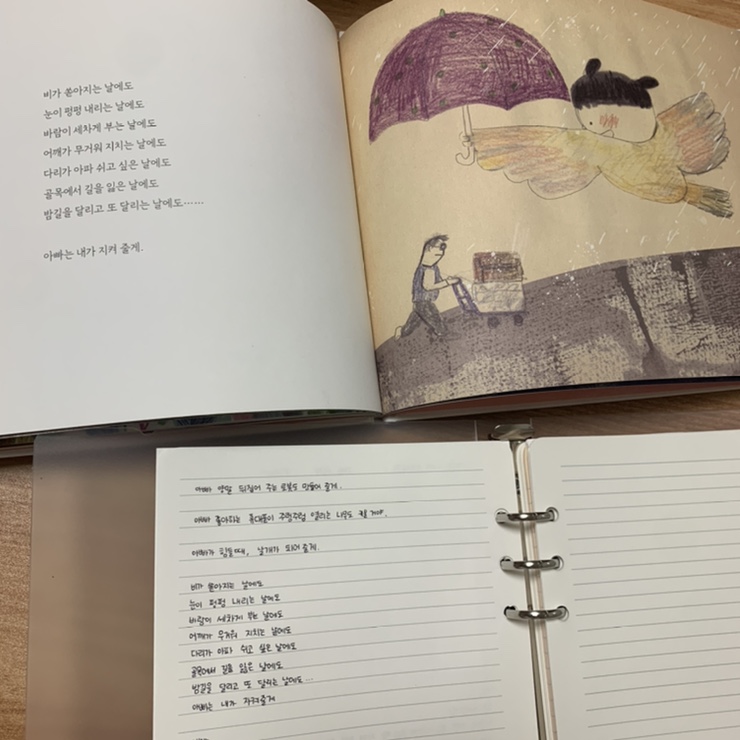 비가 쏟아지는 날에도
눈이 펑펑 내리는 날에도
바람이 세차게 부는 날에도
어깨가 무거워 지치는 날에도
다리가 아파 쉬고 싶은 날에도
골목에서 길을 잃은 날에도
밤길을 달리고 또 달리는 날에도……
아빠는 내가 지켜 줄게.
아빠 양말 뒤집어 주는 로봇도 만들어 줄게.
아빠 좋아하는 주렁주렁 열리는 나무도 키울 거야.
아빠가 힘들 때, 날개가 되어 줄게.
비가 쏟아지는 날에도
눈이 펑펑 내리는 날에도
바람이 세차게 부는 날에도
어깨가 무거워 지치는 날에도
다리가 아파 쉬고 싶은 날에도
골목에서 길을 잃은 날에도
밤길을 달리고 또 달리는 날에도…
아빠는 내가 지켜줄게